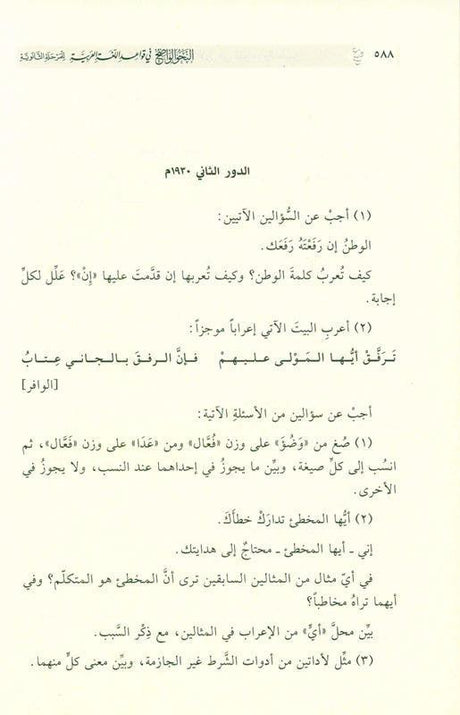 ٥٨٨ النحو الواضح في قواعد اللغة العربية للمرحلة الثانوية
الدور الثاني ١٩٣٠م
(١) أجبْ عن السُّؤالين الآتيين:
الوطنُ إن رَفَعْتَهُ رَفَعَك.
كيف تُعربُ كلمةَ الوطن؟ وكيف تُعربها إن قدَّمتَ عليها «إنْ»؟ علِّل لكلِّ
إجابة.
(٢) أعربِ البيتَ الآتي إعراباً موجزاً:
تَرَفَّقْ أيُّها المَوْلى عليهمْ فإنَّ الرفقَ بالجاني عِتابُ
[الوافر]
أجبْ عن سؤالين من الأسئلةِ الآتية:
(١) صُغ من «وَضُؤَ» على وزن «فُعَّال» ومن «عَدَا» على وزن «فَعَّال»، ثم
انسُب إلى كلِّ صيغة، وبيِّن ما يجوزُ في إحداهما عند النسب، ولا يجوزُ في
الأخرى.
(٢) أيُّها المخطئ تدارَكْ خطأَكَ.
إني ـ أيها المخطئَ ـ محتاجٌ إلى هدايتك.
في أيّ مثال من المثالين السابقين ترى أنَّ المخطئ هو المتكلّم؟ وفي
أيهما تراهُ مخاطباً؟
بيِّن محلَّ «أيٍّ» من الإعراب في المثالين، مع ذِكْر السَّبب.
(٣) مثِّل لأداتين من أدوات الشَّرط غير الجازمة، وبيِّن معنى كلٍّ منهما.